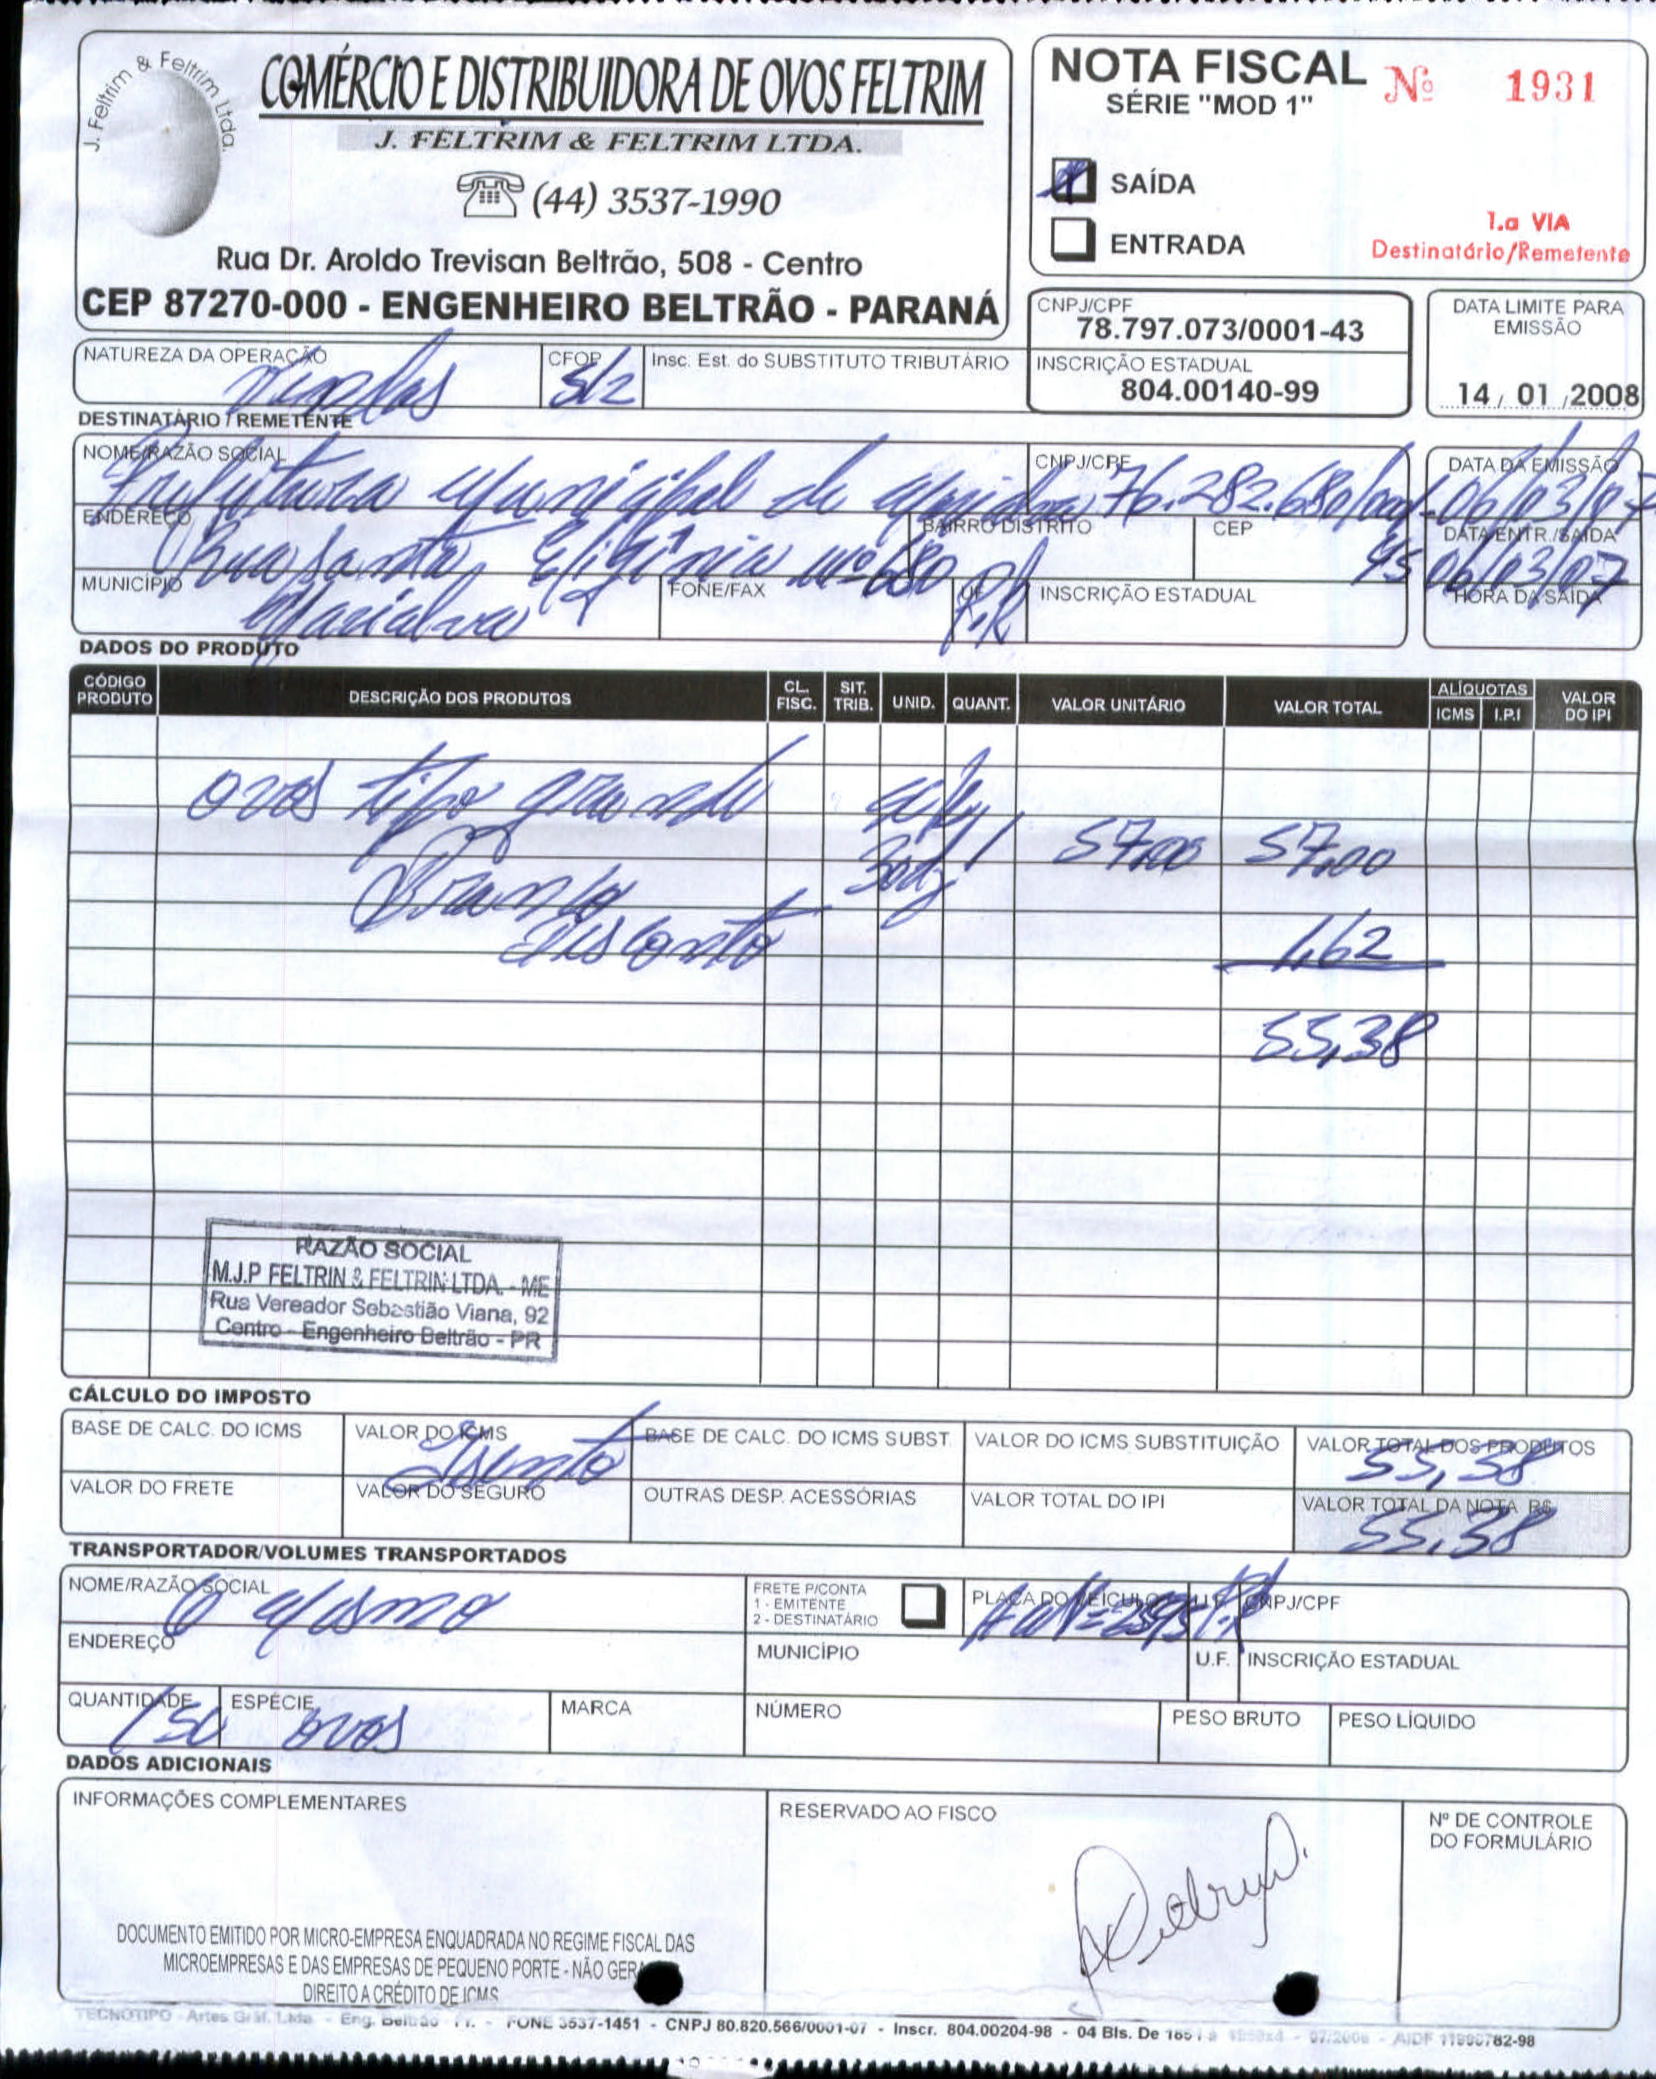 J. Feltrim & Feltrim Ltda.
COMÉRCIO E DISTRIBUIDORA DE OVOS FELTRIM
J. FELTRIM & FELTRIM LTDA.
(44) 3537-1990
Rua Dr. Aroldo Trevisan Beltrão, 508 - Centro
CEP 87270-000 - ENGENHEIRO BELTRÃO - PARANÁ
NOTA FISCAL Nº 1931
SÉRIE "MOD 1"
SAÍDA
ENTRADA
1.a VIA
Destinatário/Remetente
CNPJ/CPF
78.797.073/0001-43
INSCRIÇÃO ESTADUAL
804.00140-99
DATA LIMITE PARA
EMISSÃO
14/01/2008
NATUREZA DA OPERAÇÃO
CFOP
Insc. Est. do SUBSTITUTO TRIBUTÁRIO
Vendas 512
DESTINATÁRIO / REMETENTE
NOME/RAZÃO SOCIAL
CNPJ/CPF
DATA DA EMISSÃO
Prefeitura Municipal de 76.282.680/000 06/03/07
ENDEREÇO
BAIRRO DISTRITO
CEP
DATA ENTR./SAÍDA
Rua Santa Efigênia nº 680 06/03/07
MUNICÍPIO
FONE/FAX
UF
INSCRIÇÃO ESTADUAL
HORA DA SAÍDA
Marialva P.R
DADOS DO PRODUTO
CÓDIGO PRODUTO DESCRIÇÃO DOS PRODUTOS CL. FISC. SIT. TRIB. UNID. QUANT. VALOR UNITÁRIO VALOR TOTAL ALÍQUOTAS ICMS I.P.I VALOR DO IPI
ovos tipo grande
30dz 1 57,00 57,00
Branco
Desconto 1,62
55,38
RAZÃO SOCIAL
M.J.P FELTRIN & FELTRIN LTDA. - ME
Rua Vereador Sebastião Viana, 92
Centro - Engenheiro Beltrão - PR
CÁLCULO DO IMPOSTO
BASE DE CALC. DO ICMS
VALOR DO ICMS
BASE DE CALC. DO ICMS SUBST.
VALOR DO ICMS SUBSTITUIÇÃO
VALOR TOTAL DOS PRODUTOS
Isento 55,38
VALOR DO FRETE
VALOR DO SEGURO
OUTRAS DESP. ACESSÓRIAS
VALOR TOTAL DO IPI
VALOR TOTAL DA NOTA R$
55,38
TRANSPORTADOR/VOLUMES TRANSPORTADOS
NOME/RAZÃO SOCIAL
FRETE P/CONTA
1 - EMITENTE
2 - DESTINATÁRIO
PLACA DO VEÍCULO
U.F.
CNPJ/CPF
O Mesmo P.R
ENDEREÇO
MUNICÍPIO
U.F.
INSCRIÇÃO ESTADUAL
QUANTIDADE
ESPÉCIE
MARCA
NÚMERO
PESO BRUTO
PESO LÍQUIDO
ovos
DADOS ADICIONAIS
INFORMAÇÕES COMPLEMENTARES
RESERVADO AO FISCO
Nº DE CONTROLE
DO FORMULÁRIO
DOCUMENTO EMITIDO POR MICRO-EMPRESA ENQUADRADA NO REGIME FISCAL DAS
MICROEMPRESAS E DAS EMPRESAS DE PEQUENO PORTE - NÃO GERA
DIREITO A CRÉDITO DE ICMS
TECNOTIPO Artes Gráf. Ltda - Eng. Beltrão - Pr. - FONE 3537-1451 - CNPJ 80.820.566/0001-07 - Inscr. 804.00204-98 - 04 Bls. De